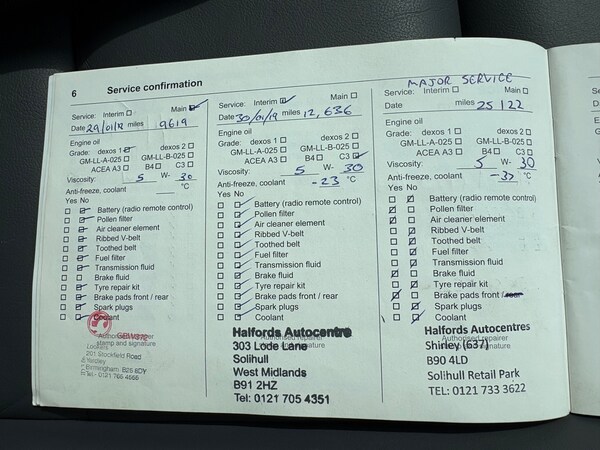 6 Service confirmation
Service: Interim Main
Date 29/01/18 miles 9619
Engine oil
Grade: dexos 1 dexos 2
GM-LL-A-025 GM-LL-B-025
ACEA A3 B4 C3
Viscosity: 5 W- 30
Anti-freeze, coolant °C
Yes No
Battery (radio remote control)
Pollen filter
Air cleaner element
Ribbed V-belt
Toothed belt
Fuel filter
Transmission fluid
Brake fluid
Tyre repair kit
Brake pads front / rear
Spark plugs
Coolant
Authorised repairer
stamp and signature
Lookers
201 Stockfield Road
Yardley
Birmingham B25 8DY
Tel: 0121 766 4666
Service: Interim Main
Date 30/01/19 miles 12,636
Engine oil
Grade: dexos 1 dexos 2
GM-LL-A-025 GM-LL-B-025
ACEA A3 B4 C3
Viscosity: 5 W- 30
Anti-freeze, coolant -23 °C
Yes No
Battery (radio remote control)
Pollen filter
Air cleaner element
Ribbed V-belt
Toothed belt
Fuel filter
Transmission fluid
Brake fluid
Tyre repair kit
Brake pads front / rear
Spark plugs
Coolant
Authorised repairer
stamp and signature
Halfords Autocentre
303 Lode Lane
Solihull
West Midlands
B91 2HZ
Tel: 0121 705 4351
MAJOR SERVICE
Service: Interim Main
Date miles 25122
Engine oil
Grade: dexos 1 dexos 2
GM-LL-A-025 GM-LL-B-025
ACEA A3 B4 C3
Viscosity: 5 W- 30
Anti-freeze, coolant °C
Yes No
Battery (radio remote control)
Pollen filter
Air cleaner element
Ribbed V-belt
Toothed belt
Fuel filter
Transmission fluid
Brake fluid
Tyre repair kit
Brake pads front / rear
Spark plugs
Coolant
Authorised repairer
stamp and signature
Halfords Autocentres
Shirley (637)
B90 4LD
Solihull Retail Park
TEL: 0121 733 3622